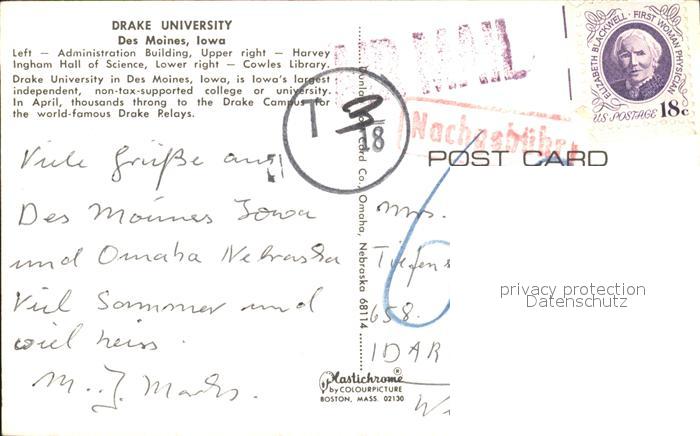 DRAKE UNIVERSITY
Des Moines, Iowa
Left — Administration Building, Upper right — Harvey
Ingham Hall of Science, Lower right — Cowles Library.
Drake University in Des Moines, Iowa, is Iowa's largest
independent, non-tax-supported college or university.
In April, thousands throng to the Drake Campus for
the world-famous Drake Relays.
AIR MAIL
ELIZABETH BLACKWELL · FIRST WOMAN PHYSICIAN
U.S. POSTAGE 18c
T
18
Nachgebühr
POST CARD
Viele Grüße aus
Des Moines Iowa
und Omaha Nebraska
Viel Sommer und
viel heiss.
Card Co., Omaha, Nebraska 68114
Mrs.
Tiefens
658
IDAR
W
privacy protection
Datenschutz
Plastichrome®
by COLOURPICTURE
BOSTON, MASS. 02130